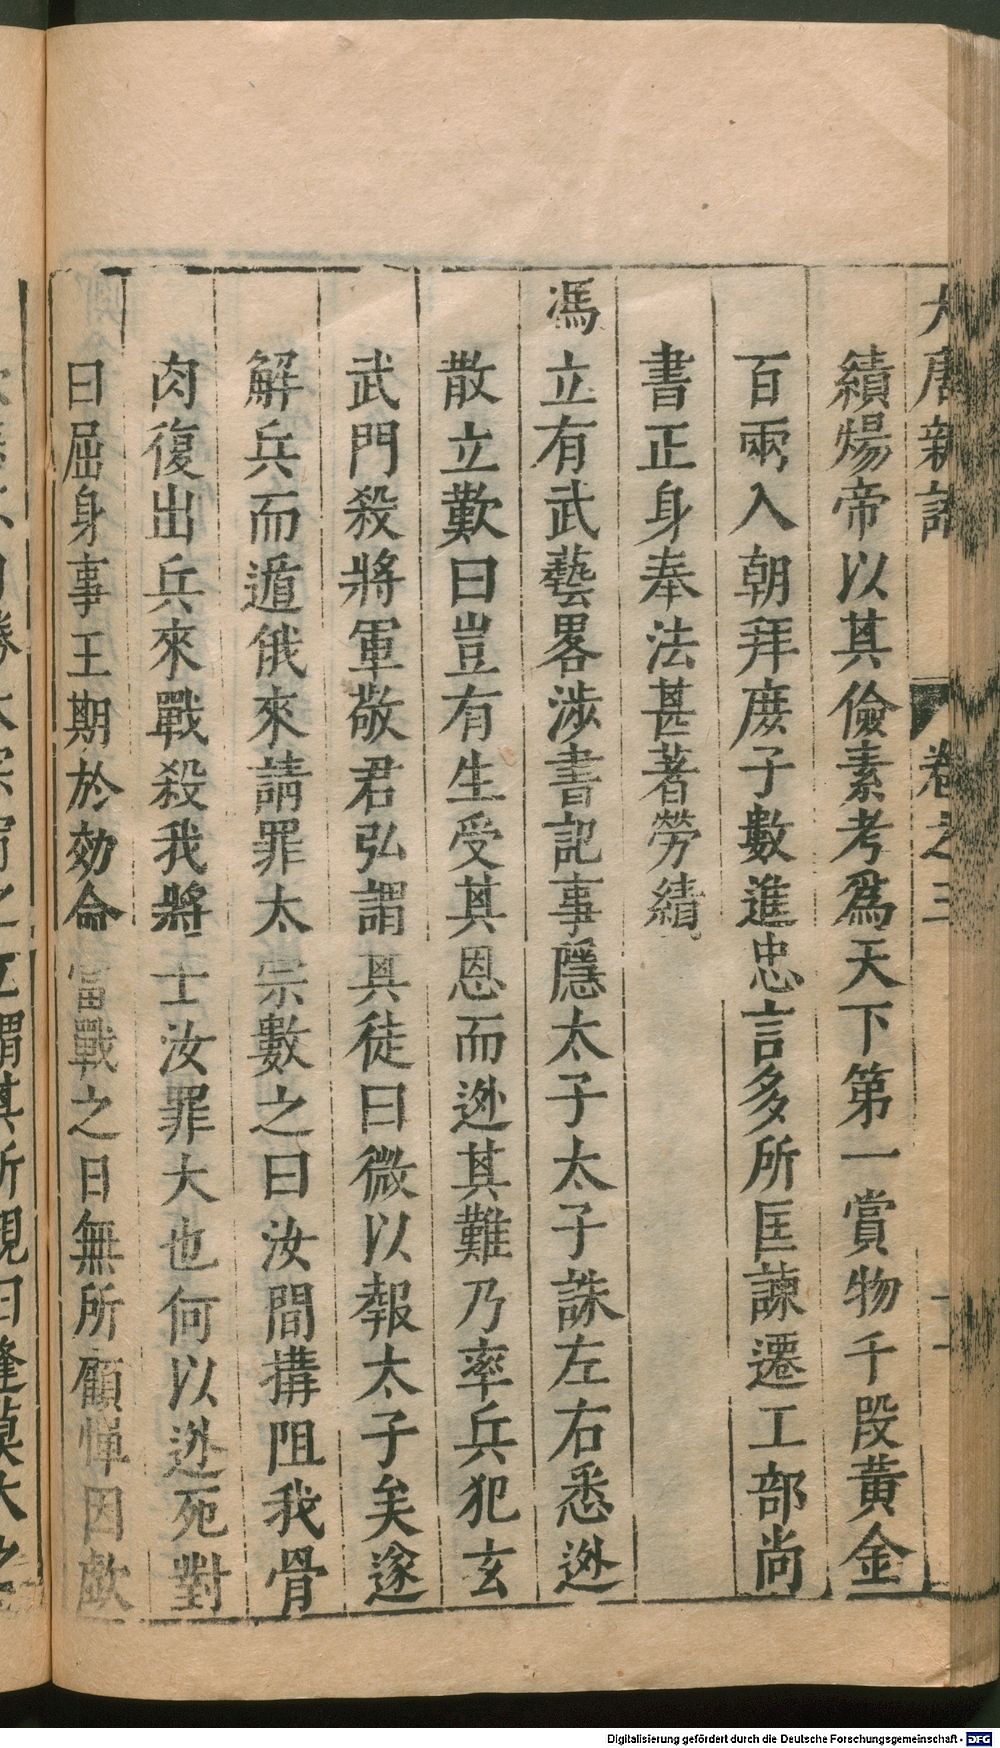 大唐新語 卷之三
績煬帝以其儉素考爲天下第一賞物千段黃金
百兩入朝拜庶子數進忠言多所匡諫遷工部尚
書正身奉法甚著勞績
馮立有武藝畧涉書記事隱太子太子誅左右悉迯
散立歎曰豈有生受其恩而迯其難乃率兵犯玄
武門殺將軍敬君弘謂其徒曰微以報太子矣遂
解兵而遁俄來請罪太宗數之曰汝間搆阻我骨
肉復出兵來戰殺我將士汝罪大也何以迯死對
曰屈身事王期於効命當戰之日無所顧憚因歔
立謂其所親曰逢莫大之
Digitalisierung gefördert durch die Deutsche Forschungsgemeinschaft - DFG